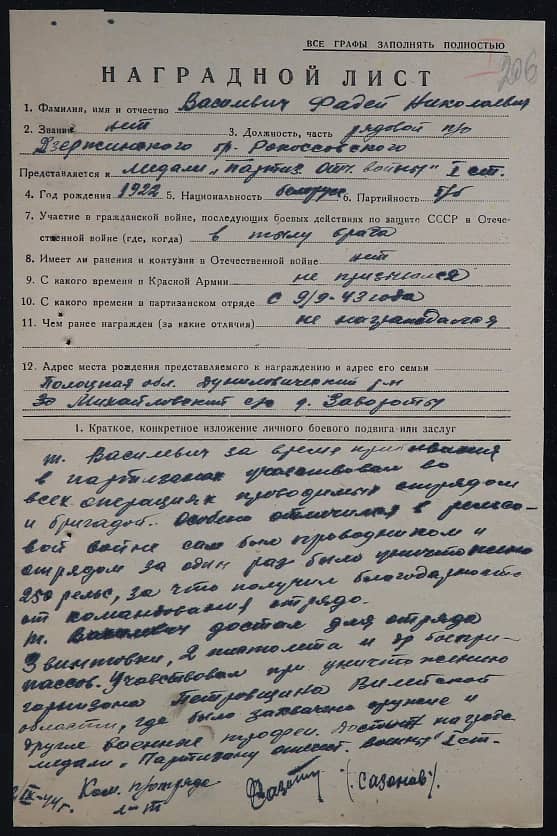 ВСЕ ГРАФЫ ЗАПОЛНЯТЬ ПОЛНОСТЬЮ
206
НАГРАДНОЙ ЛИСТ
1. Фамилия, имя и отчество Василевич Фадей Николаевич
2. Звание нет 3. Должность, часть рядовой п/о
Дзержинского бр. Рокоссовского
Представляется к медали „Партиз. Отч. войны" I ст.
4. Год рождения 1922 5. Национальность белорус 6. Партийность б/п
7. Участие в гражданской войне, последующих боевых действиях по защите СССР и Отече-
ственной войне (где, когда) в тылу врага
8. Имеет ли ранения и контузии в Отечественной войне нет
9. С какого времени в Красной Армии не призывался
10. С какого времени в партизанском отряде с 9/9-43 года
11. Чем ранее награжден (за какие отличия) не награждался
12. Адрес места рождения представляемого к награждению и адрес его семьи
Полоцкая обл. Дуниловический р-н
Михайловский с/с д. Заворосты
1. Краткое, конкретное изложение личного боевого подвига или заслуг
т. Василевич за время пребывания
в партизанах участвовал во
всех операциях проводимых отрядом
и бригадой. Особенно отличился в рельсо-
вой войне сам был проводником и
отрядом за один раз было уничтожено
250 рельс, за что получил благодарность
от командования отряда.
т. Василевич достал для отряда
3 винтовки, 2 пистолета и др боепри-
пассов. Учавствовал при уничтожению
гарнизона Петровщина Вилейской
области, где было захвачено оружие и
другие военные трофеи. Достоин награде
медали „Партизану отечест. войны" I ст.
Ком. п/отряда
л-т (Сазонов).
IX-44 г.